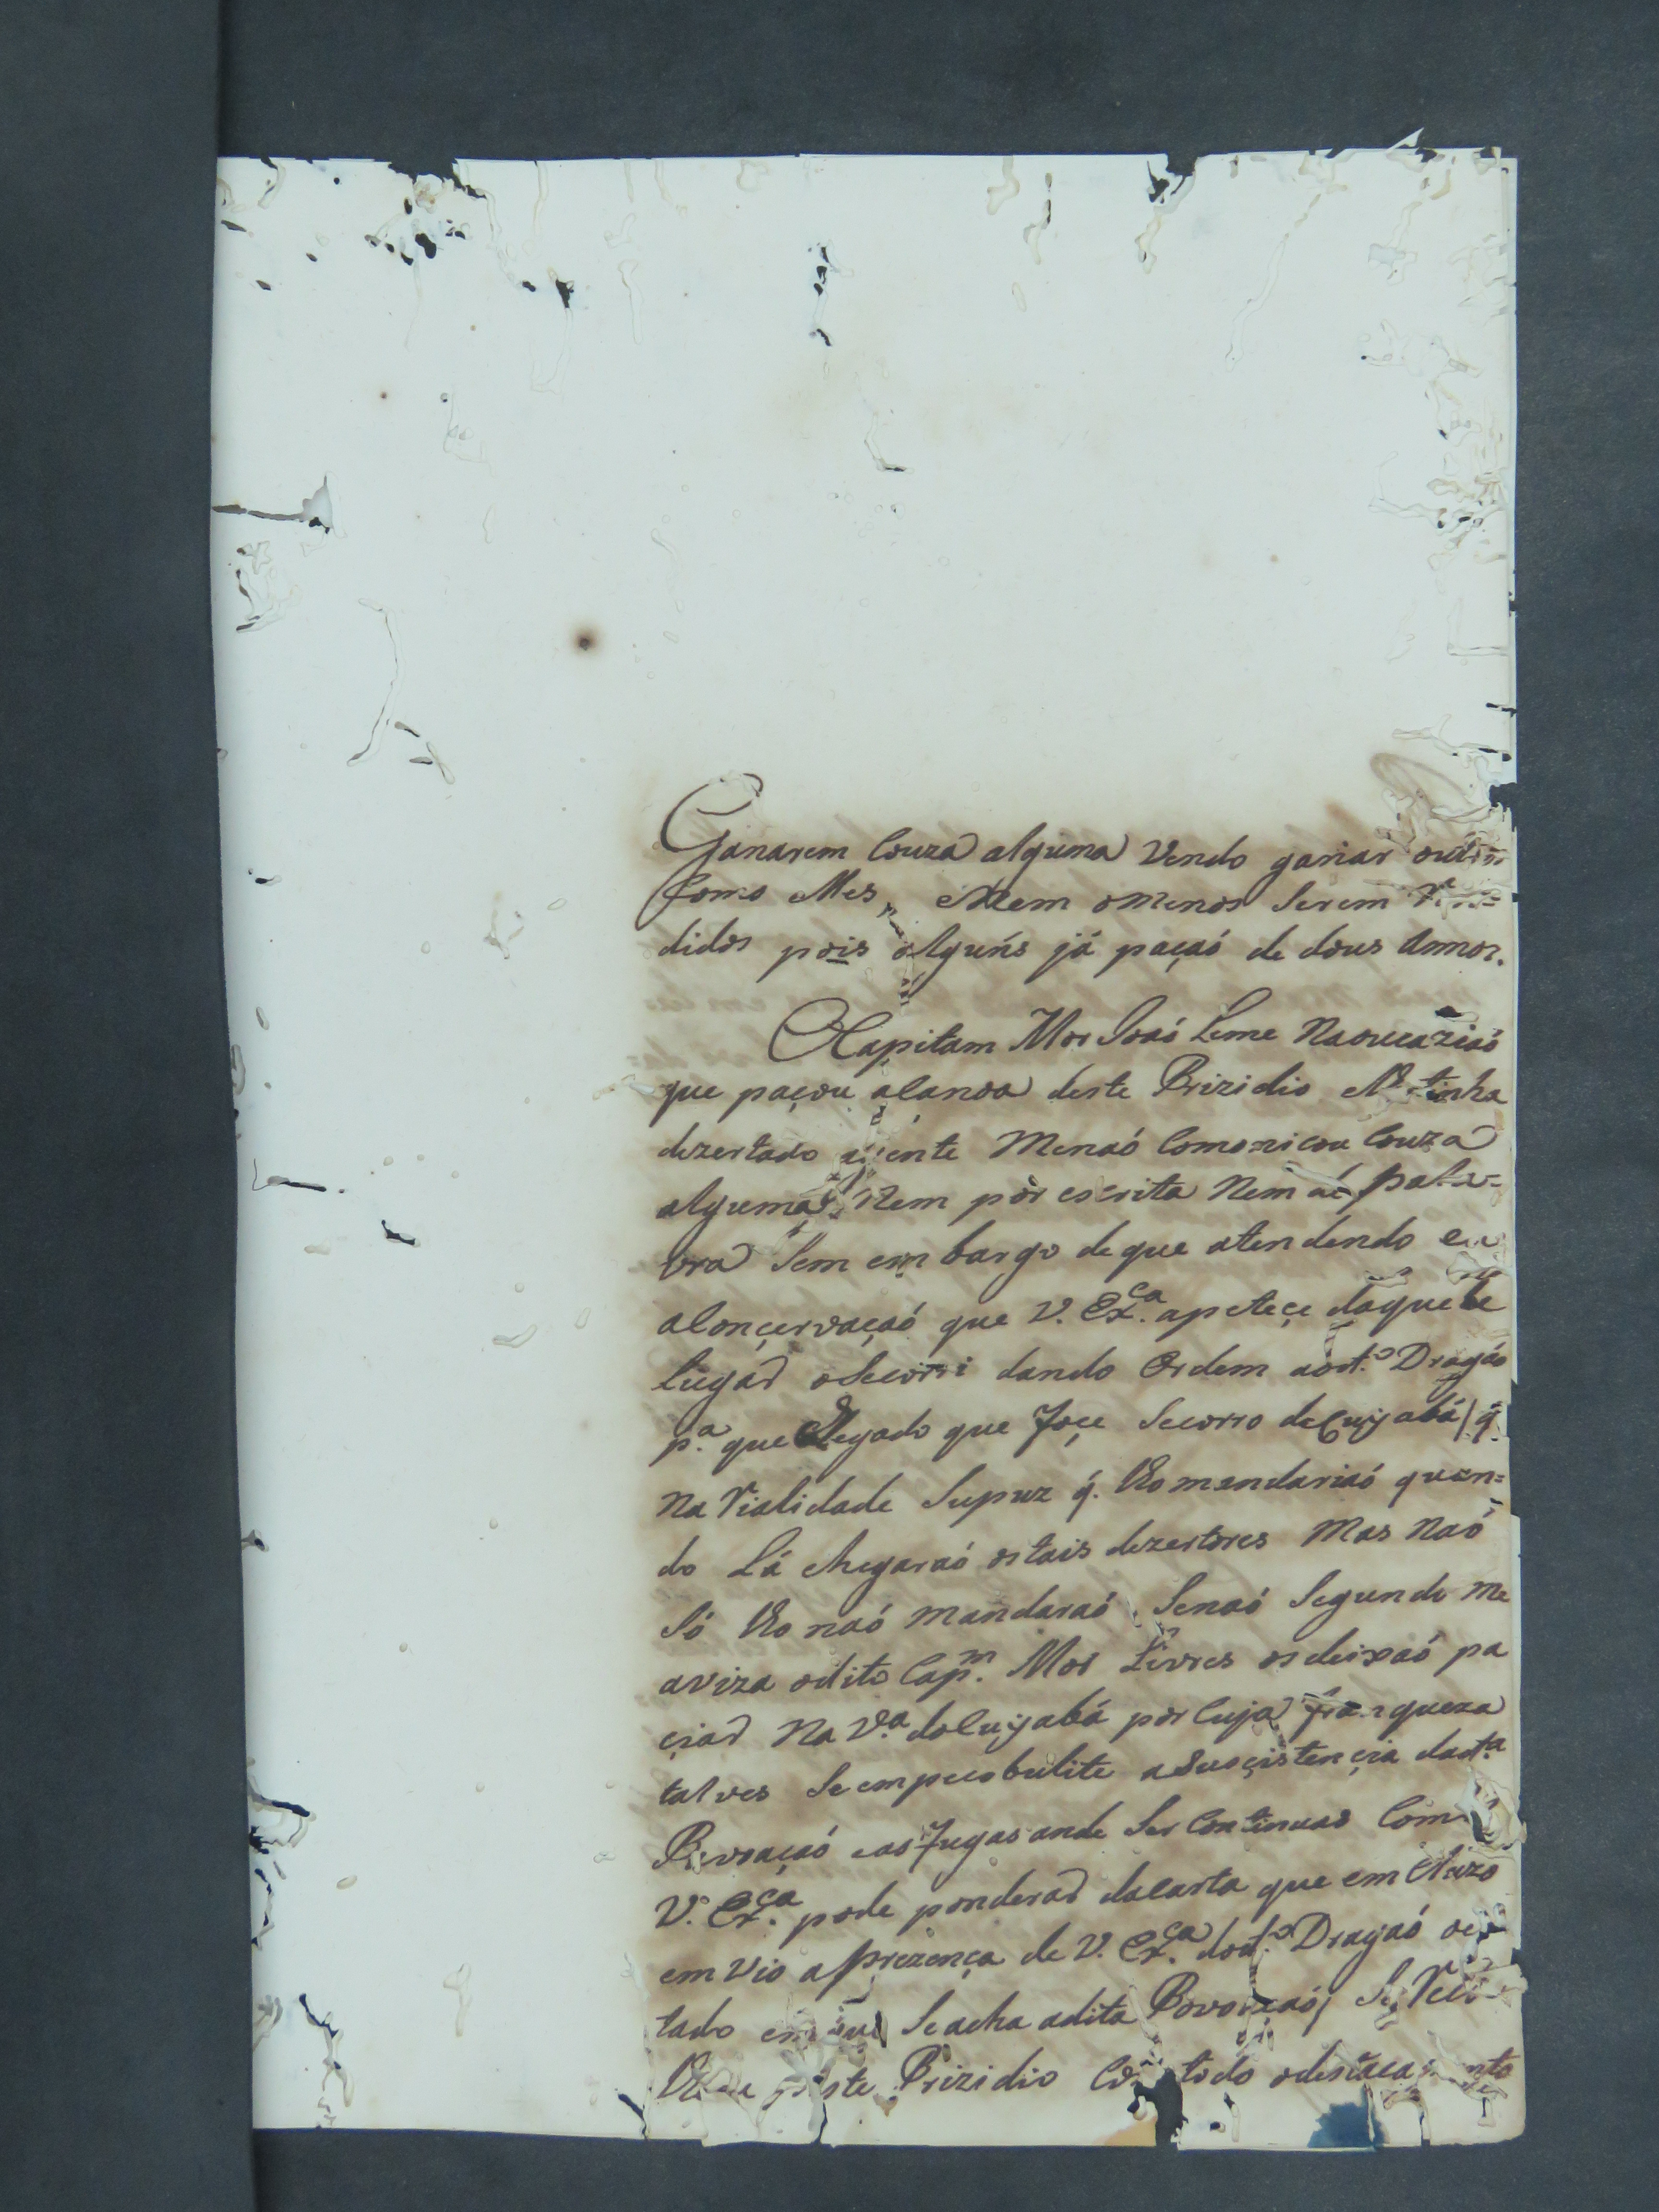 Ganarem Couza alguma Vendo ganar outros
Como elles, e Nem omenos Serem
didos pois alguñs já paçaó de dous Annos.
O Capitam Mor Joaó Leme Naoucaziaó
que paçou alanoa deste Prizidio e lhe tinha
dezertado gente Menaó Comonicou Couza
alguma Nem pór escrita Nem de pala-
vra Sem embargo deque atendendo eu
aConçervaçaó que V. Ex.ca apeteçe daquele
Lugar oSecorri dando Ordem aod.o Dragaó
p.a que chegado que foçe Secorro deCuyabá / q.
Na Rialidade Supuz q. lho mandariaó quan=
do Lá chegaraó ostais dezertores Mas Naó
Só lho naó mandaraó Senaó Segundo me
aviza odito Cap.m Mor Livres osdeixaó pa
çiar Na V.a doCuyabá por Cuja franqueza
talves Seempecobulite aSusçistençia dad.a
Povoaçaó eas fugas ande Ser Continuas Com
V. Ex.ca pode ponderar daCarta que em Cluzo
emvio aprezença de V. Ex.ca dod.o Dragaó oes
tado em que Seacha adita Povoaçaó,
este Prizidio Com todo odestacamento